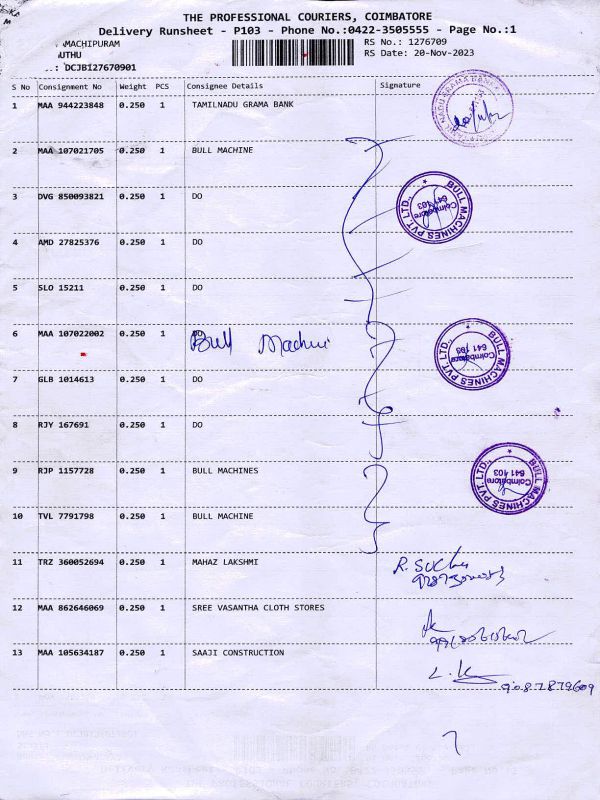 THE PROFESSIONAL COURIERS, COIMBATORE
Delivery Runsheet - P103 - Phone No.:0422-3505555 - Page No.:1
MACHIPURAM
RS No.: 1276709
UTHU
RS Date: 20-Nov-2023
: DCJBI27670901
S No Consignment No Weight PCS Consignee Details Signature
1 MAA 944223848 0.250 1 TAMILNADU GRAMA BANK
2 MAA 107021705 0.250 1 BULL MACHINE
3 DVG 850093821 0.250 1 DO
4 AMD 27825376 0.250 1 DO
5 SLO 15211 0.250 1 DO
6 MAA 107022002 0.250 1 DO
Bull Machine
7 GLB 1014613 0.250 1 DO
8 RJY 167691 0.250 1 DO
9 RJP 1157728 0.250 1 BULL MACHINES
10 TVL 7791798 0.250 1 BULL MACHINE
11 TRZ 360052694 0.250 1 MAHAZ LAKSHMI
12 MAA 862646069 0.250 1 SREE VASANTHA CLOTH STORES
13 MAA 105634187 0.250 1 SAAJI CONSTRUCTION
L.K
9087879609
BULL MACHINES PVT. LTD.,
Coimbatore
641 103
BULL MACHINES PVT. LTD.,
Coimbatore
641 103
BULL MACHINES PVT. LTD.,
Coimbatore
641 103